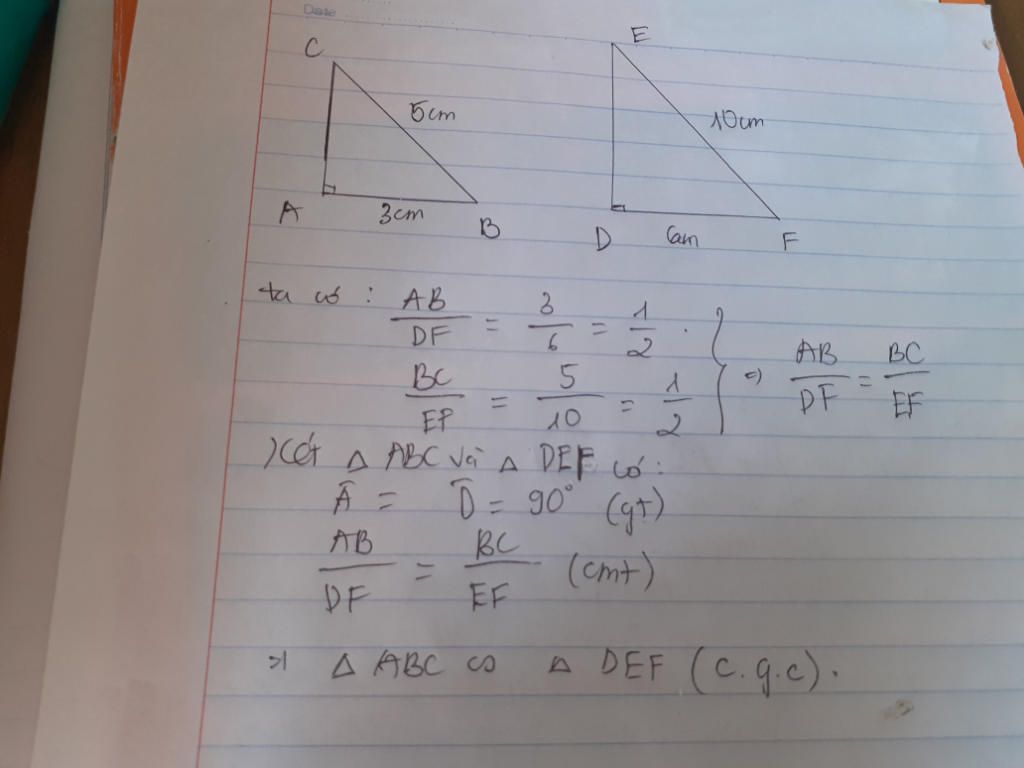 Date
C
E
5cm
10cm
A
3cm
B
D
6cm
F
ta có : AB/DF = 3/6 = 1/2 .
BC/EF = 5/10 = 1/2 } => AB/DF = BC/EF
Xét △ ABC và △ DEF có :
Â = D̂ = 90° (gt)
AB/DF = BC/EF (cmt)
=> △ ABC ∽ △ DEF (c.g.c).